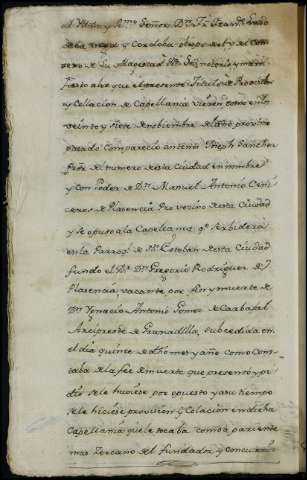 el Ilustr.mo y R.mo Señor Dn Fr.
de la y Cordoba, obispo de del Con-
sejo de Su Magestad hago notorio y mani-
fiesto a los que el presente titulo de Provision
y Colacion de Capellania vieren como en
veinte y siete de nobiembre del año proximo
pasado comparecio ante mi Joseph Sanchez
Proc.r de numero de esta Ciudad en nombre
y con Poder de Dn Manuel Antonio Ceni-
ceros de Plasencia Pro vecino de esta Ciudad
y se opuso a la Capellania q.e se sirbe
en la Parroq.l de Sn Esteban de esta Ciudad
fundo el Dn Gregorio Rodriguez de
Plasencia, vacante por fin y muerte de
Dn Ygnacio Antonio Gomez de Carbajal
Arcipreste de Granadilla, subcedida en
el dia quince de dho mes y año como cons-
taba de la fee de muerte que presentó y pi-
dió se le hubiese por opuesto y a su tiempo
se le hiciese provision y Colacion en dicha
Capellania que le tocaba como a pariente
mas cercano del fundador y concurrir